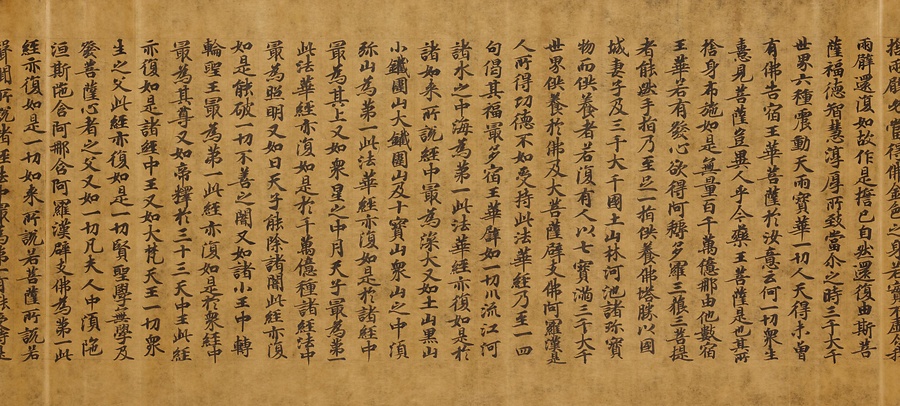 捨兩臂必當得佛金色之身若實不虛令我
兩臂還復如故作是誓已自然還復由斯菩
薩福德智慧淳厚所致當尒之時三千大千
世界六種震動天雨寶華一切人天得未曾
有佛告宿王華菩薩於汝意云何一切眾生
憙見菩薩豈異人乎今藥王菩薩是也其所
捨身布施如是無量百千萬億那由他數宿
王華若有發心欲得阿耨多羅三藐三菩提
者能然手指乃至足一指供養佛塔勝以國
城妻子及三千大千國土山林河池諸珎寶
物而供養者若復有人以七寶滿三千大千
世界供養於佛及大菩薩辟支佛阿羅漢是
人所得功德不如受持此法華經乃至一四
句偈其福最多宿王華辟如一切川流江河
諸水之中海為第一此法華經亦復如是於
諸如來所說經中最為深大又如土山黑山
小鐵圍山大鐵圍山及十寶山眾山之中須
弥山為第一此法華經亦復如是於諸經中
最為其上又如眾星之中月天子最為第一
此法華經亦復如是於千萬億種諸經法中
最為照明又如日天子能除諸闇此經亦復
如是能破一切不善之闇又如諸小王中轉
輪聖王最為第一此經亦復如是於眾經中
最為其尊又如帝釋於三十三天中王此經
亦復如是諸經中王又如大梵天王一切眾
生之父此經亦復如是一切賢聖學無學及
發菩薩心者之父又如一切凡夫人中須陁
洹斯陁含阿那含阿羅漢辟支佛為第一此
經亦復如是一切如來所說若菩薩所說若
聲聞所說諸經法中最為第一有能受持是